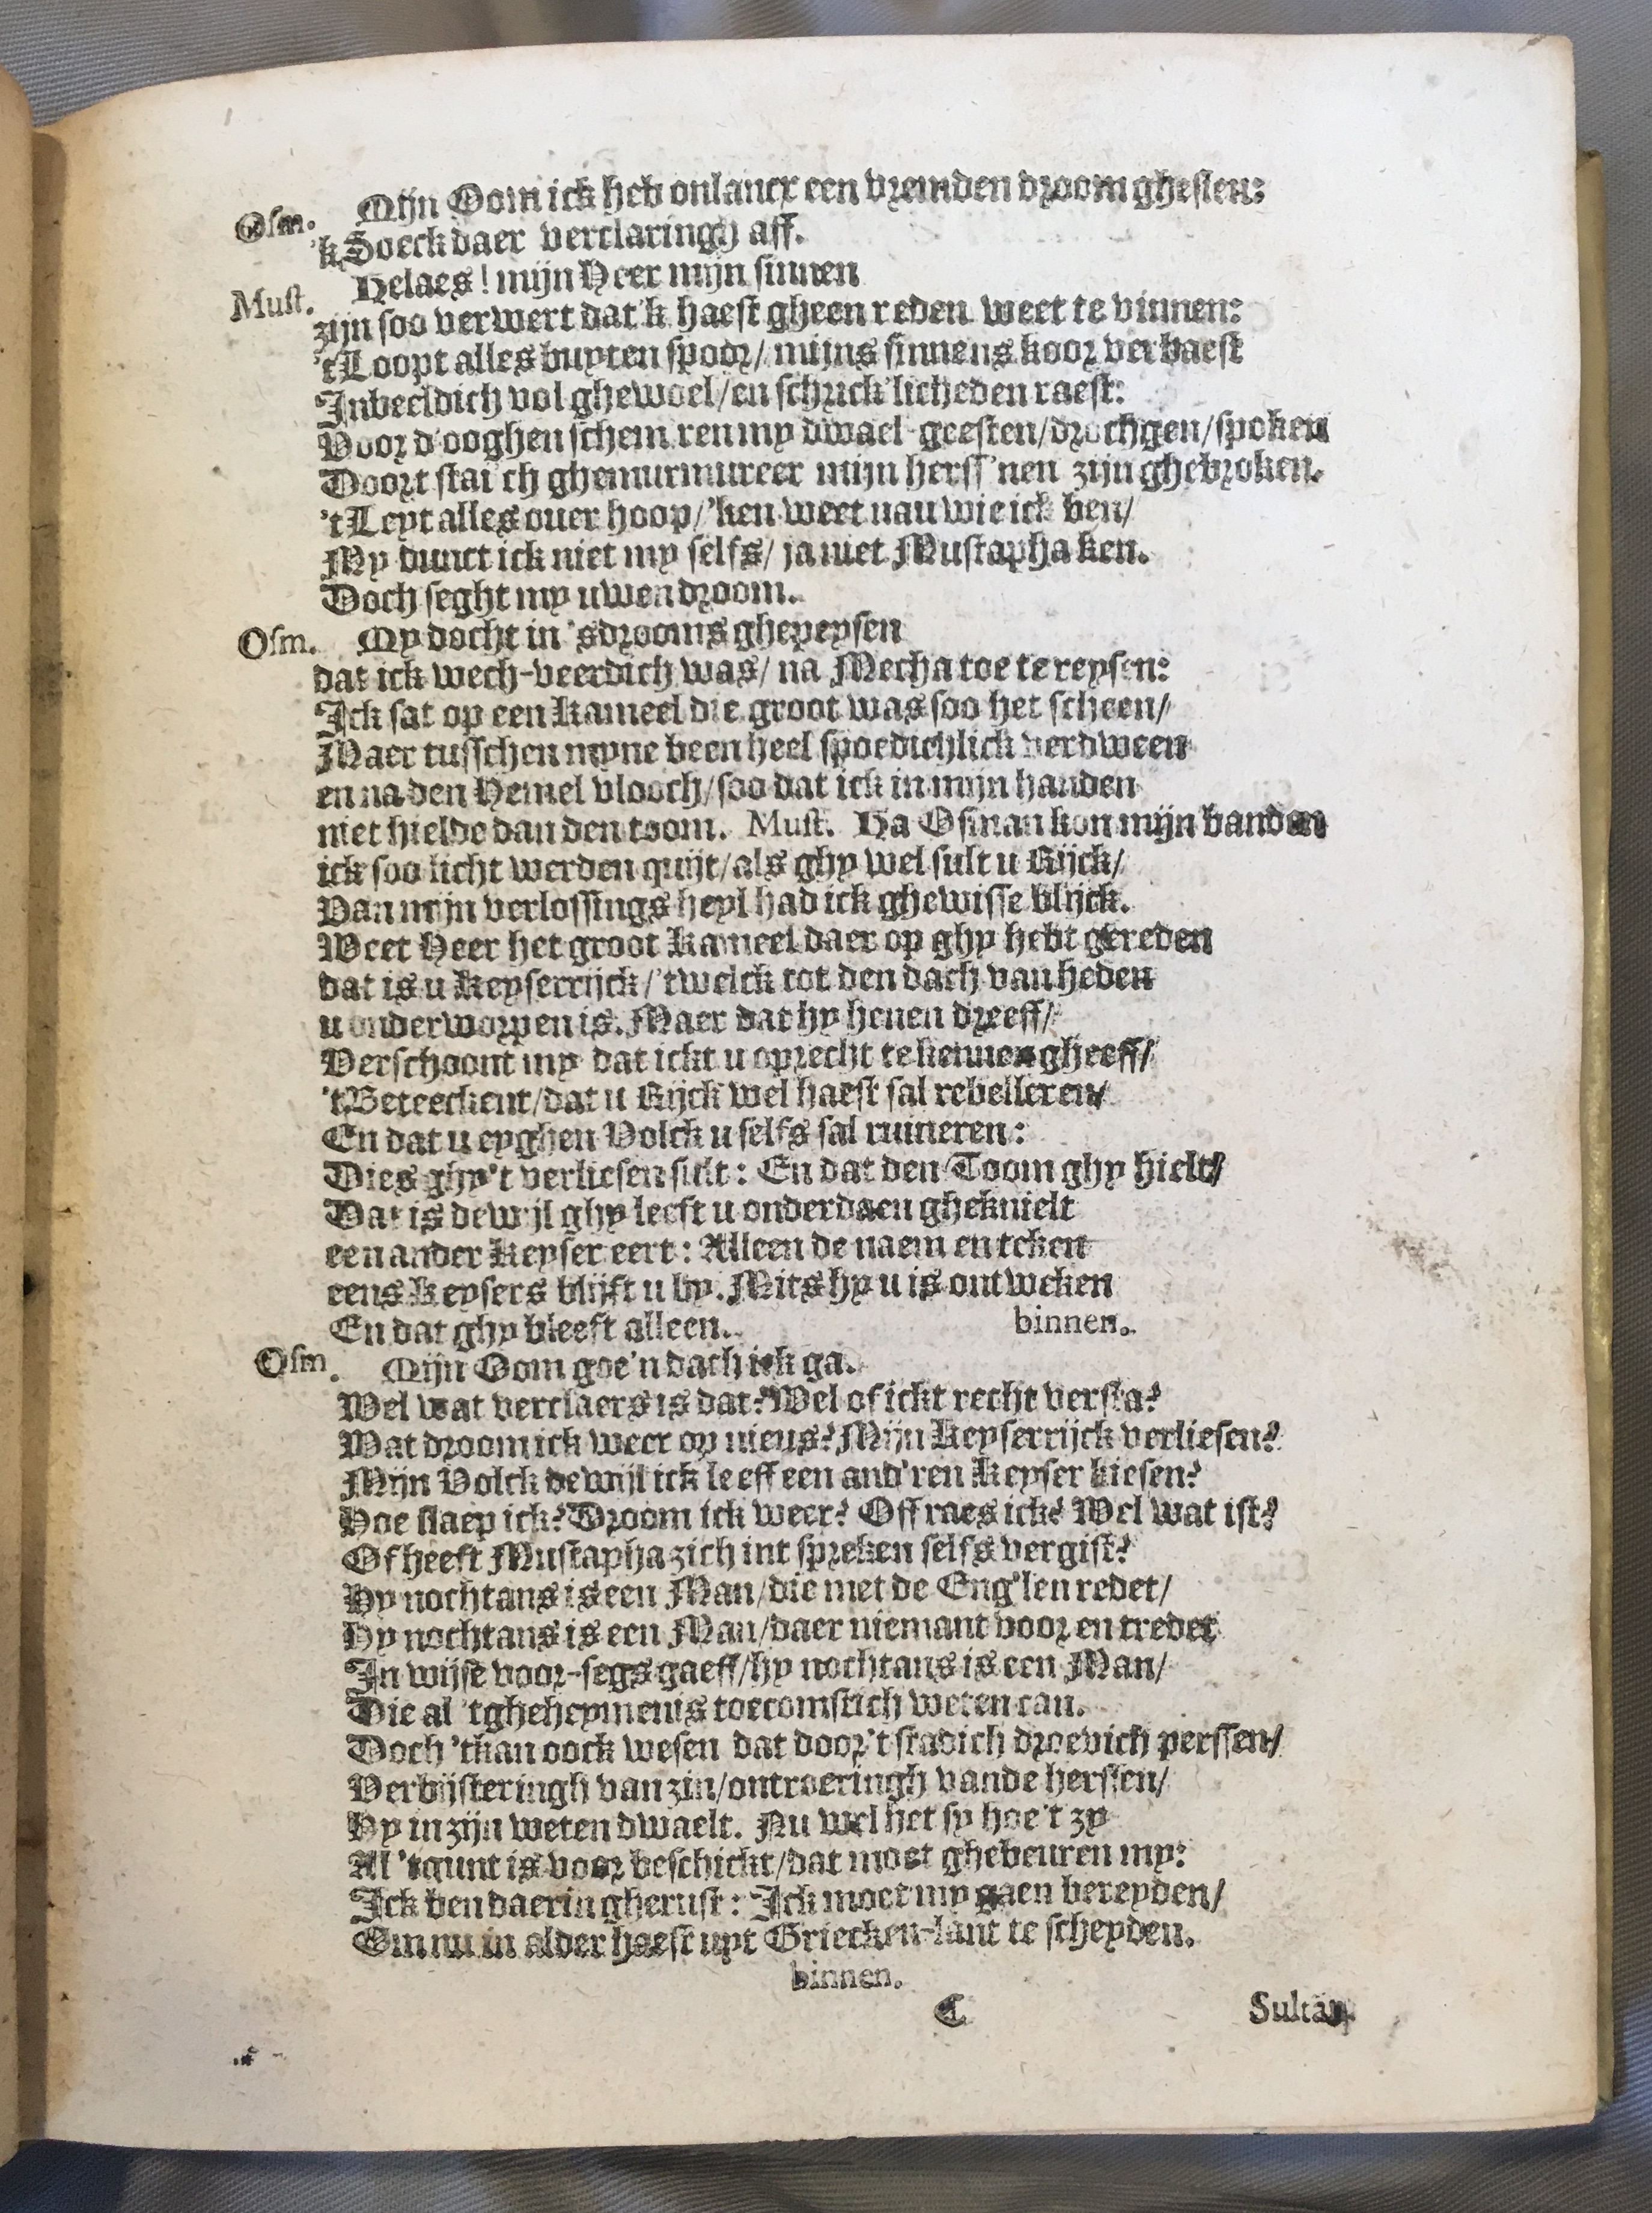 Osm. Mijn Oom ick heb onlancx een vremden droom ghesien:
'k Soeck daer verclaringh aff.
Must. Helaes! mijn Heer mijn sinnen
zijn soo verwert dat'k haest gheen reden weet te vinnen:
't Loopt alles buyten spoor/ mijns sinnens koor verbaest
Inbeeldich vol ghewoel/ en schrick'licheden raest:
Voor d'ooghen schem'ren my dwael-geesten/ drochgen/ spoken
Doort starich ghemurmureer mijn herss'nen zijn ghebroken.
't Leyt alles over hoop/ 'ken weet nau wie ick ben/
My dunct ick niet my selfs/ ja niet Mustapha ken.
Doch seght my uwen droom.
Osm. My docht in 'sdrooms ghepeysen
dat ick wech-veerdich was/ na Mecha toe te reysen:
Ick sat op een Kameel die groot was soo het scheen/
Maer tusschen myne been heel spoedichlick verdween
en na den Hemel vlooch/ soo dat ick in mijn handen
niet hielde dan den toom. Must. Ha Osman kon mijn banden
ick soo licht werden quijt/ als ghy wel sult u Rijck/
Van mijn verlossings heyl had ick ghewisse blijck.
Weet Heer het groot Kameel daer op ghy hebt gereden
dat is u Keyserrijck/ 'twelck tot den dach van heden
u onderworpen is. Maer dat hy henen dreeff/
Verschoont my dat ickt u oprecht te kennen gheeff/
't Beteeckent/ dat u Rijck wel haest sal rebelleren/
En dat u eyghen Volck u selfs sal ruineren:
Dies ghy't verliesen sult: En dat den Toom ghy hielt/
Dat is dewijl ghy leeft u onderdaen gheknielt
een ander Keyser eert: Alleen de naem en teken
eens Keysers blijft u by. Mits hy u is ontweken
En dat ghy bleeft alleen. binnen.
Osm. Mijn Oom goe'n dach ick ga.
Wel wat verclaers is dat? Wel of ickt recht versta?
Wat droom ick weer op nieus? Mijn Keyserrijck verliesen?
Mijn Volck dewijl ick leeff een and'ren Keyser kiesen?
Hoe slaep ick? Droom ick weer? Off raes ick? Wel wat ist?
Of heeft Mustapha zich int spreken selfs vergist?
Hy nochtans is een Man/ die met de Eng'len redet/
Hy nochtans is een Man/ daer niemant voor en tredet
In wijse voor-segs gaeff/ hy nochtans is een Man/
Die al 'tgheheymenis toecomstich weten can.
Doch 'tkan oock wesen dat door't stadich droevich perssen/
Verbijsteringh van zin/ ontroeringh vande herssen/
Hy in zijn weten dwaelt. Nu wel het sy hoe't zy
Al 'tgunt is voor beschickt/ dat moet ghebeuren my:
Ick ben daer in gherust: Ick moet my gaen bereyden/
Om nu in alder haest uyt Griecken-lant te scheyden.
binnen.
C Sultan